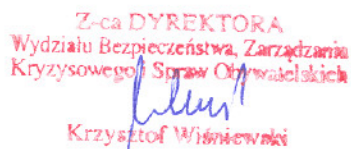 Z-ca DYREKTORA
Wydziału Bezpieczeństwa, Zarządzania
Kryzysowego i Spraw Obywatelskich
Krzysztof Wiśniewski